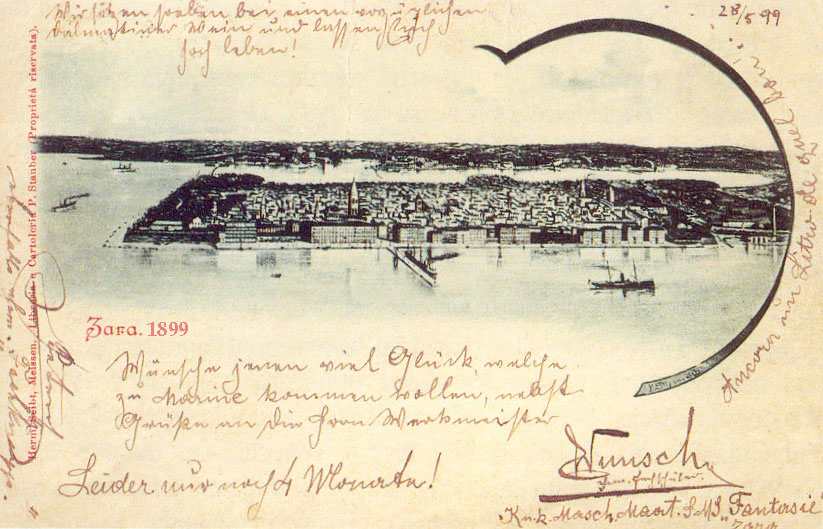 Wir sitzen soeben bei einem vorzüglichen
Dalmatiner Wein und lassen Euch
hoch leben!
28/5 99
Hermann Seibt, Meissen. Libreria e Cartoleria P. Stauber (Proprietà riservata).
Zara. 1899
Ancora un Litro de quel bon!
Wünsche jenen viel Glück, welche
zu Marine kommen wollen, nebst
Grüße an die Herrn Werkmeister
Leider nur noch 4 Monate!
Wunsch
K.u.k. Masch. Maat. S.M.S. „Fantasie"
Zara